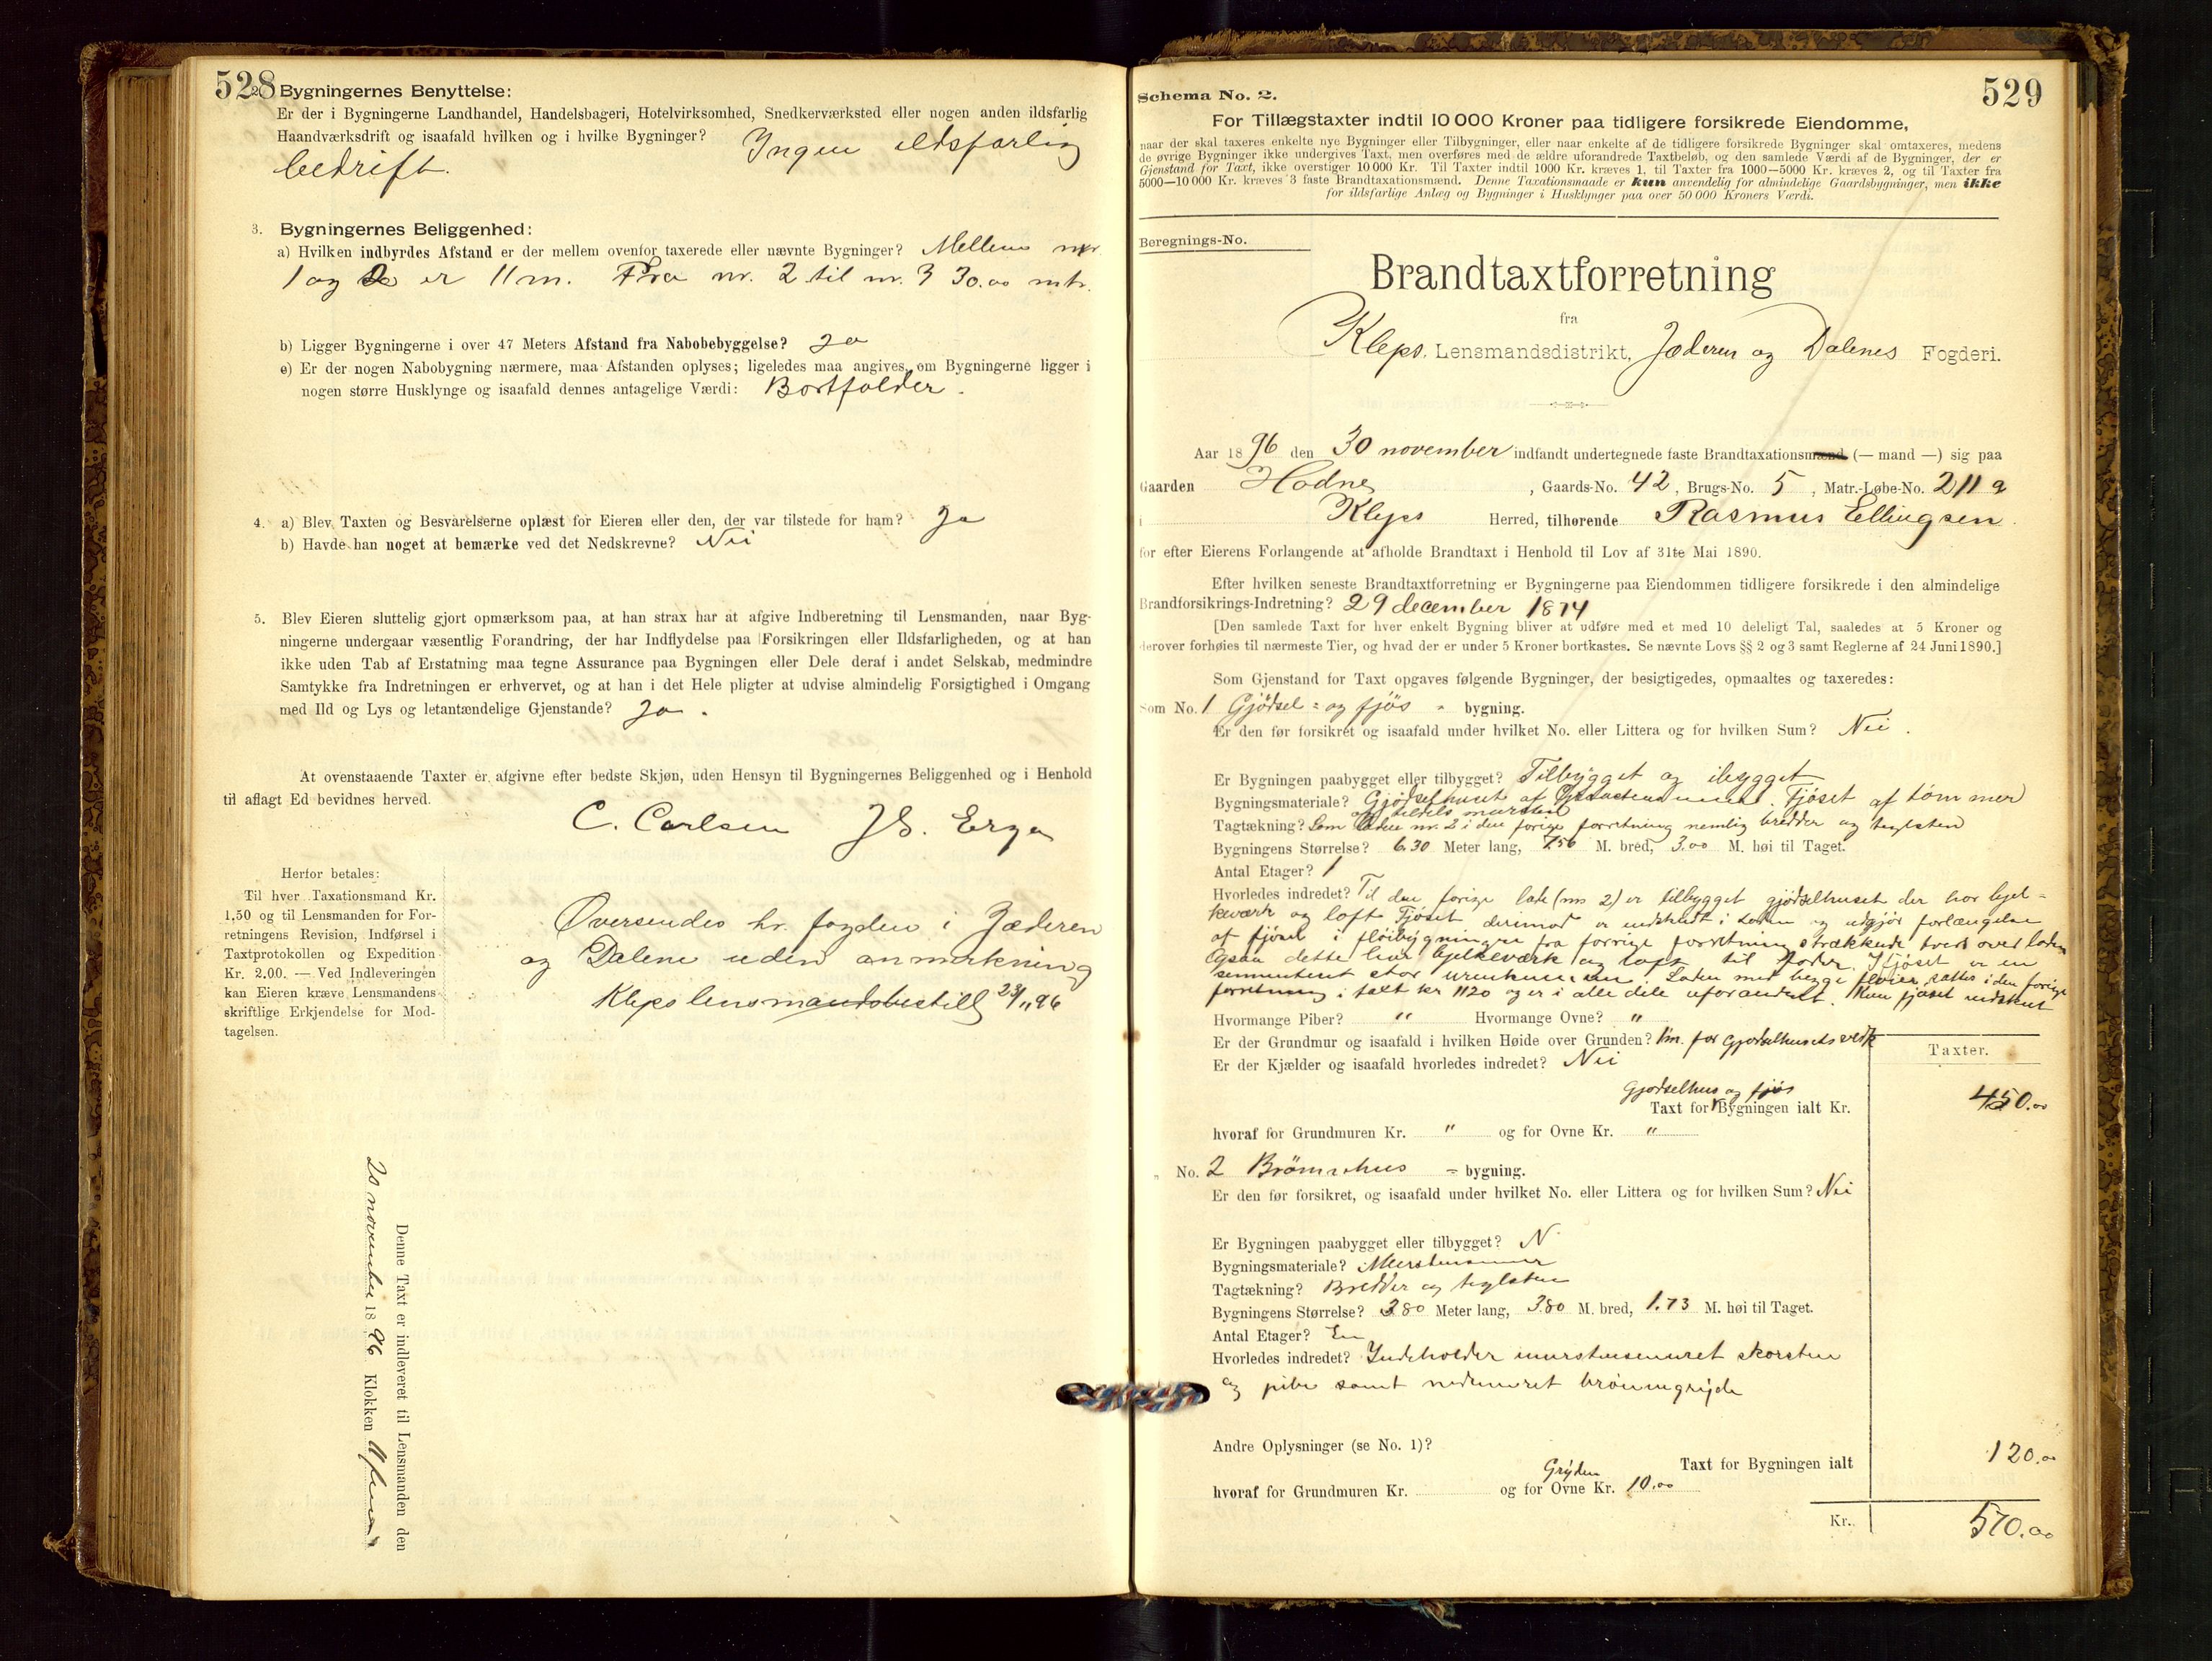 528
2. Bygningernes Benyttelse:
Er der i Bygningerne Landhandel, Handelsbageri, Hotelvirksomhed, Snedkerværksted eller nogen anden ildsfarlig
Haandværksdrift og isaafald hvilken og i hvilke Bygninger? Ingen ildsfarlig
bedrift.
3. Bygningernes Beliggenhed:
a) Hvilken indbyrdes Afstand er der mellem ovenfor taxerede eller nævnte Bygninger? Mellem nr
1 og 2 er 11 m. Fra nr. 2 til nr. 3 30.00 mtr.
b) Ligger Bygningerne i over 47 Meters Afstand fra Nabobebyggelse? Ja
c) Er der nogen Nabobygning nærmere, maa Afstanden oplyses; ligeledes maa angives, om Bygningerne ligger i
nogen større Husklynge og isaafald dennes antagelige Værdi: Bortfalder.
4. a) Blev Taxten og Besvarelserne oplæst for Eieren eller den, der var tilstede for ham? Ja
b) Havde han noget at bemærke ved det Nedskrevne? Nei
5. Blev Eieren sluttelig gjort opmærksom paa, at han strax har at afgive Indberetning til Lensmanden, naar Byg-
ningerne undergaar væsentlig Forandring, der har Indflydelse paa Forsikringen eller Ildsfarligheden, og at han
ikke uden Tab af Erstatning maa tegne Assurance paa Bygningen eller Dele deraf i andet Selskab, medmindre
Samtykke fra Indretningen er erhvervet, og at han i det Hele pligter at udvise almindelig Forsigtighed i Omgang
med Ild og Lys og letantændelige Gjenstande? Ja.
At ovenstaaende Taxter er afgivne efter bedste Skjøn, uden Hensyn til Bygningernes Beliggenhed og i Henhold
til aflagt Ed bevidnes herved.
C. Carlsen J S. Erga
Herfor betales:
Til hver Taxationsmand Kr.
1,50 og til Lensmanden for For-
retningens Revision, Indførsel i
Taxtprotokollen og Expedition
Kr. 2,00. — Ved Indleveringen
kan Eieren kræve Lensmandens
skriftlige Erkjendelse for Mod-
tagelsen.
Oversendes hr. fogden i Jæderen
og Dalene uden anmærkning
Kleps lensmandsbestill 23/11 96
Denne Taxt er indleveret til Lensmanden den
20 november 1896 Klokken
529
Schema No. 2.
For Tillægstaxter indtil 10 000 Kroner paa tidligere forsikrede Eiendomme,
naar der skal taxeres enkelte nye Bygninger eller Tilbygninger, eller naar enkelte af de tidligere forsikrede Bygninger skal omtaxeres, medens
de øvrige Bygninger ikke undergives Taxt, men overføres med de ældre uforandrede Taxtbeløb, og den samlede Værdi af de Bygninger, der er
Gjenstand for Taxt, ikke overstiger 10 000 Kr. Til Taxter indtil 1000 Kr. kræves 1, til Taxter fra 1000—5000 Kr. kræves 2, og til Taxter fra
5000—10 000 Kr. kræves 3 faste Brandtaxationsmænd. Denne Taxationsmaade er kun anvendelig for almindelige Gaardsbygninger, men ikke
for ildsfarlige Anlæg og Bygninger i Husklynger paa over 50 000 Kroners Værdi.
Beregnings-No.
Brandtaxtforretning
fra
Kleps Lensmandsdistrikt, Jæderen og Dalenes Fogderi.
Aar 1896 den 30 november indfandt undertegnede faste Brandtaxationsmænd (— mand —) sig paa
Gaarden Hodne, Gaards-No. 42, Brugs-No. 5, Matr.-Løbe-No. 211 a
i Kleps Herred, tilhørende Rasmus Ellingsen
for efter Eierens Forlangende at afholde Brandtaxt i Henhold til Lov af 31te Mai 1890.
Efter hvilken seneste Brandtaxtforretning er Bygningerne paa Eiendommen tidligere forsikrede i den almindelige
Brandforsikrings-Indretning? 29 december 1874
[Den samlede Taxt for hver enkelt Bygning bliver at udføre med et med 10 deleligt Tal, saaledes at 5 Kroner og
derover forhøies til nærmeste Tier, og hvad der er under 5 Kroner bortkastes. Se nævnte Lovs §§ 2 og 3 samt Reglerne af 24 Juni 1890.]
Som Gjenstand for Taxt opgaves følgende Bygninger, der besigtigedes, opmaaltes og taxeredes:
Som No. 1 Gjödsel- og fjös - bygning.
Er den før forsikret og isaafald under hvilket No. eller Littera og for hvilken Sum? Nei.
Er Bygningen paabygget eller tilbygget? Tilbygget og ibygget
Bygningsmateriale? Gjödselhuset af. Fjöset af tömmer
og tildels mursten
Tagtækning? Som laden nr. 2 i den forige forretning nemlig bredder og teglsten
Bygningens Størrelse? 6.30 Meter lang, 7.50 M. bred, 3.00 M. høi til Taget.
Antal Etager? 1
Hvorledes indredet? Til den forige lade (nr 2) er tilbygget gjödselhuset der har bjel-
kværk og loft. Fjöset derimod er indskudt i laden og udgjör forlængelse
af fjöset i flöibygningen fra forrige forretning strækkende tvers over laden
Ogsaa dette har bjelkeværk og loft til foder. I fjöset er en
sementeret stor. Laden med begge flöier sattes i den forige
forretning i talt kr 1120 og er i alle dele uforandret. Kun fjöset indskudt
Hvormange Piber? " Hvormange Ovne? "
Er der Grundmur og isaafald i hvilken Høide over Grunden? 1 m. for gjodselhusets
Er der Kjælder og isaafald hvorledes indredet? Nei
Taxter.
Gjodselhus og fjös
Taxt for Bygningen ialt Kr. 450.00
hvoraf for Grundmuren Kr. " og for Ovne Kr. "
" No. 2 Brömmehus - bygning.
Er den før forsikret, og isaafald under hvilket No. eller Littera og for hvilken Sum? Nei
Er Bygningen paabygget eller tilbygget? N
Bygningsmateriale? Murstensmur
Tagtækning? Bredder og teglsten
Bygningens Størrelse? 3.80 Meter lang, 3.80 M. bred, 1.73 M. høi til Taget.
Antal Etager? En
Hvorledes indredet? Indeholder murstensmuret skorsten
og pibe samt nedmuret
Andre Oplysninger (se No. 1)?
Taxt for Bygningen ialt 120.00
Gryden
hvoraf for Grundmuren Kr. og for Ovne Kr. 10.00
Kr. 570.00